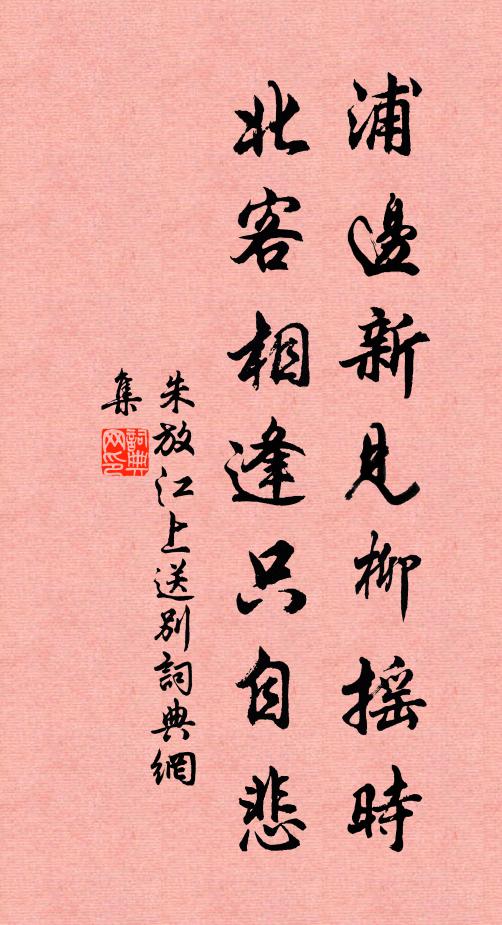 浦邊新見柳摇時
北客相逢只自悲
朱放江上送别詞典網
集
詞典网印